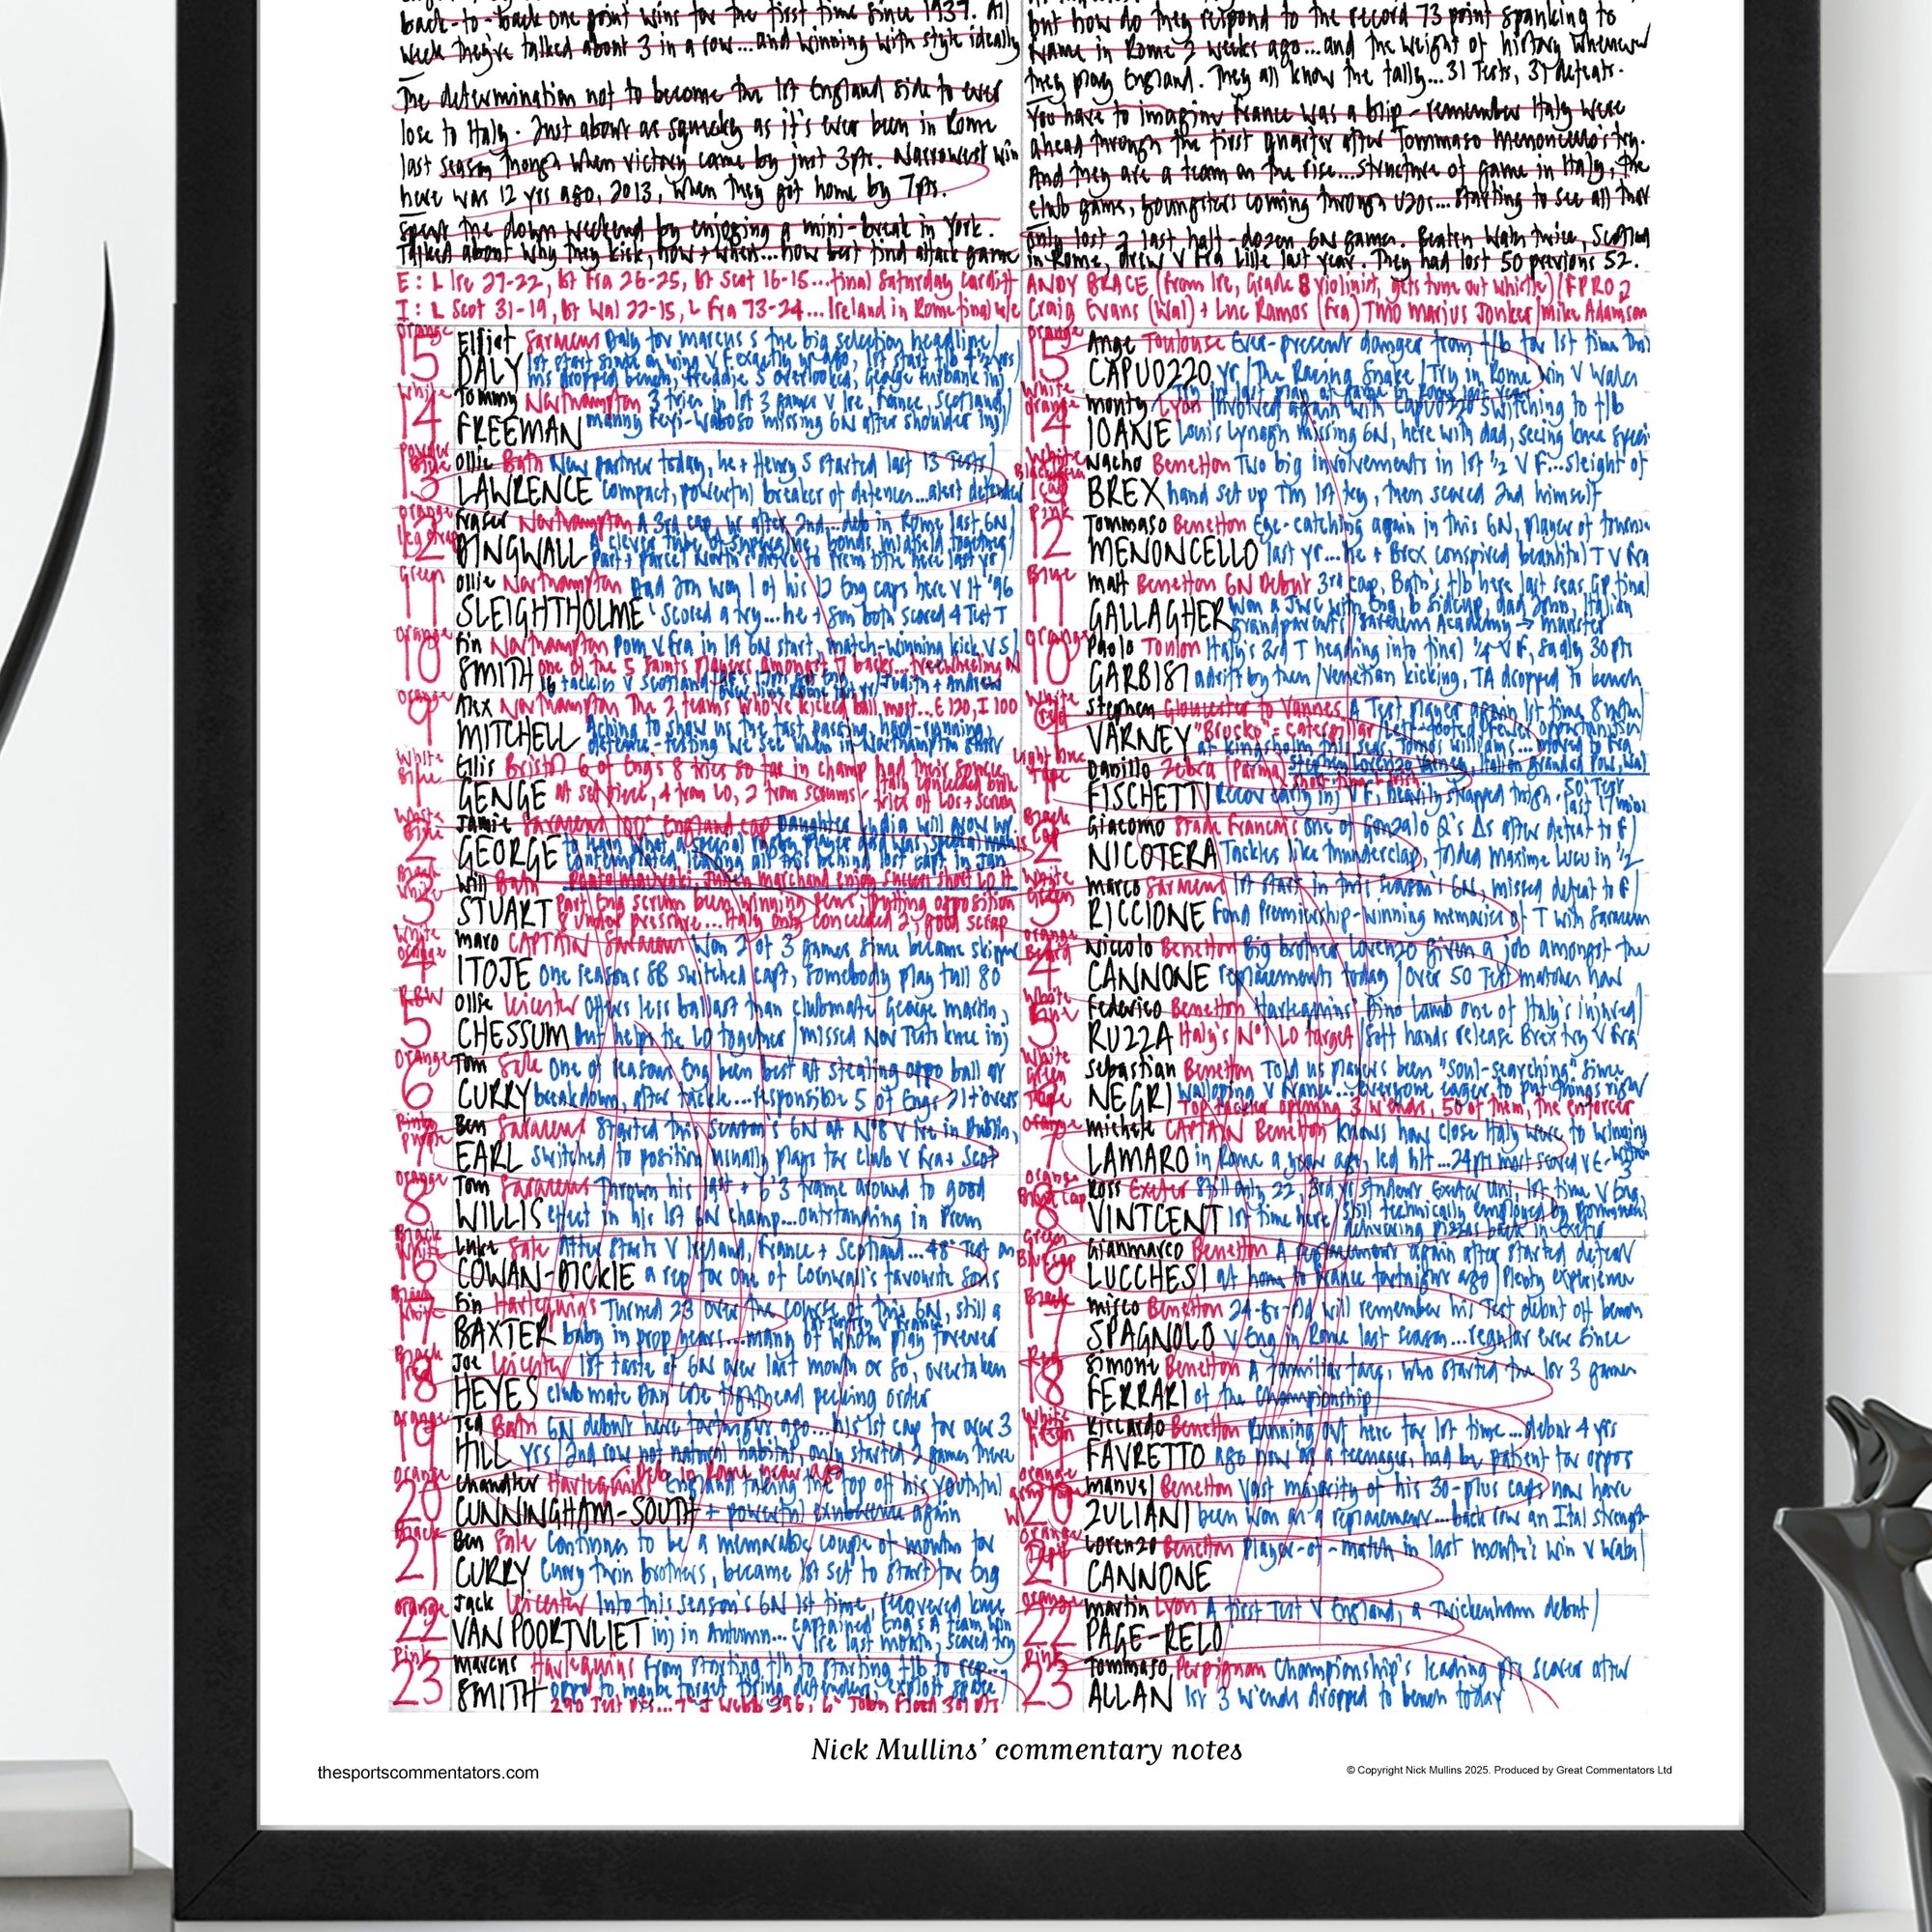 back-to-back one point wins for the first time since 1937. All
week they're talked about 3 in a row...and winning with style ideally
The determination not to become the 1st England side to ever
lose to Italy. Just about as squeaky as it's ever been in Rome
last season though when victory came by just 3pts. Narrowest win
here was 12 yrs ago, 2013, when they got home by 7pts.
Spent the down weekend by enjoying a mini-break in York.
Talked about why they kick, how + when...how best find attack game
E: L Ire 27-22, bt Fra 26-25, bt Scot 16-15...final Saturday Cardiff
I: L Scot 31-19, bt Wal 22-15, L Fra 73-24...Ireland in Rome final w/e
but how do they respond to the record 73 point spanking to
in Rome 2 weeks ago...and the weight of history whenever
they play England. They all know the tally...31 Tests, 31 defeats.
You have to imagine France was a blip - remember Italy were
ahead through the first quarter after Tommaso Menoncello's try.
And they are a team on the rise...structure of game in Italy, the
club game, youngsters coming through U20s...starting to see all that
only lost 2 last half-dozen 6N games. Beaten Wales twice, Scotland
in Rome, drew v Fra Lille last year. They had lost 50 previous 52.
ANDY BRACE (from Ire, Grade 8 violinist, gets tune out whistle) (FPRO2
Craig Evans (Wal) + Luc Ramos (Fra) TMO Marius Jonker/Mike Adamson
Orange
15 Elliot Saracens Daly for Marcus S the big selection headline/
DALY 1st start since on wing v F exactly yr ago, 1st start f/b 4½ yrs/
MS dropped bench, Freddie S overlooked, George Furbank inj
White
14 Tommy Northampton 3 tries in 1st 3 games v Ire, France, Scotland/
FREEMAN Manny Feyi-Waboso missing 6N after shoulder inj
Powder Blue
13 Ollie Bath New partner today, he + Henry S started last 13 Tests/
LAWRENCE compact, powerful breaker of defences...alert defender
Orange leg strap
12 Fraser Northampton A 3rd cap, yr after 2nd...deb in Rome last 6N/
DINGWALL
Green
11 Ollie Northampton Dad Jon won 1 of his 12 Eng caps here v It '96
SLEIGHTHOLME scored a try...he + son both scored 4 Test T
Orange
10 Fin Northampton POM v Fra in 1st 6N start, match-winning kick v S/
SMITH one of the 5 Saints players amongst 7 backs...freewheeling N
16 tackles v Scotland
Orange
9 Alex Northampton The 2 teams who've kicked ball most...E 120, I 100
MITCHELL Aching to show us the fast passing, hard-running,
defence-testing we see when in Northampton
White Blue
1 Ellis Bristol 6 of Engs 8 tries so far in champ had their source
GENGE at set piece, 4 from LO, 2 from scrums - Italy conceded
tries off LOs + scrum
White Blue
2 Jamie Saracens 100th England cap Daughter India will now
GEORGE to learn what a special rugby player dad was, special
contemplated leaving all this behind lost capt in Jan
Black White
3 Will Bath
STUART Part Eng scrum been winning pens, putting opposition
8 under pressure...Italy only conceded 2, good scrap
White Orange
4 Maro CAPTAIN Saracens Won 2 of 3 games since became skipper
ITOJE one reasons SB switched capt, somebody play full 80
R&W
5 Ollie Leicester Offers less ballast than clubmate George Martin,
CHESSUM but helps tie LO together/missed Nov Tests knee inj
Orange
6 Tom Sale One of reasons Eng been best at stealing oppo ball at
CURRY breakdown, after tackle...responsible 5 of Engs 21 t'overs
Pink Purple
7 Ben Saracens Started this season's 6N at No8 v Ire in Dublin,
EARL switched to position usually plays for club v Fra + Scot
Orange
8 Tom Saracens Thrown his 6'3 frame around to good
WILLIS effect in his 1st 6N champ...outstanding in Prem
Black White
16 Luke Sale After starts v Ireland, France + Scotland...48th Test as
COWAN-DICKIE a rep for one of Cornwall's favourite sons
Black White
17 Fin Harlequins Turned 23 over the course of this 6N, still a
BAXTER baby in prop years...many of whom play forever
Black
18 Joe Leicester 1st taste of 6N over last month or so, overtaken
HEYES club mate Dan Cole tighthead pecking order
Orange
19 Ted Bath 6N debut here fortnight ago...his 1st cap for over 3
HILL yrs/2nd row not natural habitat, only started 2 games there
Orange
20 Chandler Harlequins Deb in Rome year ago England taking the top off his youthful
CUNNINGHAM-SOUTH + powerful exuberance again
Black
21 Ben Sale Continues to be a memorable couple of months for
CURRY Curry twin brothers, became 1st set to start for Eng
Orange
22 Jack Leicester Into this season's 6N 1st time, recovered knee
VAN POORTVLIET inj in Autumn... captained Eng's A team win
v Ire last month, scored try
Pink
23 Marcus Harlequins From starting f/h to starting f/b to rep...
SMITH oppo to maybe target tiring defenders, exploit space/
290 Test pts...7th J Webb 296, 6th Toby Flood 301 pts
Orange
15 Ange Toulouse Ever-present danger from f/b for 1st time this
CAPUOZZO yr/The Racing Snake/Try in Rome win v Wales
White Orange
14 Monty Lyon Involved again with Capuozzo switching to f/b
IOANE Louis Lynagh missing 6N, here with dad, seeing knee
White
13 Nacho Benetton Two big involvements in 1st ½ v F...sleight of
BREX hand set up TM 1st try, then scored 2nd himself
Pink
12 Tommaso Benetton Eye-catching again in this 6N, player of tourn
MENONCELLO last yr...he + Brex conspired beautiful T v Fra
Blue
11 Matt Benetton 6N Debut 3rd cap, Bath's f/b here last seas GP final
GALLAGHER Won a JWC with Eng, b Sidcup, dad John, Italian
grandparents/Saracens Academy → Munster
Orange
10 Paolo Toulon Italy's 3rd T heading into final ¼ v F, sadly 30 pts
GARBISI adrift by then/Venetian kicking, TA dropped to bench
White
9 Stephen Gloucester to Vannes A Test player again 1st time 8 mths
VARNEY "Bruско" = caterpillar/left-footed
at Kingsholm this seas, Tomos Williams...moved to Fra
Light blue Tape
1 Danilo Zebra (Parma)
FISCHETTI Recov early inj v F, heavily strapped thigh
Black Cap
2 Giacomo Stade Francais One of Gonzalo Q's Δs after defeat to F/
NICOTERA Tackles like thunderclap, folded Maxime Lucu in ½
White Green
3 Marco Saracens 1st start in this season's 6N, missed defeat to F/
RICCIONI Fond Premiership-winning memories of T with Saracens
Orange Beard
4 Niccolo Benetton Big brother Lorenzo given a job amongst the
CANNONE replacements today/Over 50 Test matches now
White
5 Federico Benetton Harlequins' Dino Lamb one of Italy's injured/
RUZZA Italy's No1 LO target/soft hands release Brex try v Fra
White Green Tape
6 Sebastian Benetton Told us players been "soul-searching" since
NEGRI walloping v France...everyone eager to put things right
Top tackler opening 3 w'ends, 50 of them, the enforcer
Orange
7 Michele CAPTAIN Benetton Knows how close Italy were to winning
LAMARO in Rome a year ago, led h/t...24pts most scored v E - within 3
Orange
8 Ross Exeter Still only 22, 3rd yr student Exeter Uni, 1st time v Eng,
VINTCENT 1st time here/still technically employed by Dominos
delivering pizzas back in Exeter
Green
16 Gianmarco Benetton A replacement again after started defeat
LUCCHESI at home to France fortnight ago/Plenty experience
Black
17 Mirco Benetton 24-yr-old will remember his Test debut off bench
SPAGNOLO v Eng in Rome last season...regular ever since
Red
18 Simone Benetton A familiar face, who started the 1st 3 games
FERRARI of the Championship/
White
19 Riccardo Benetton Running out here for 1st time...debut 4 yrs
FAVRETTO ago now as a teenager, had be patient for oppos
Orange
20 Manuel Benetton Vast majority of his 30-plus caps now have
ZULIANI been won as a replacement...back row an Ital strength
Orange
21 Lorenzo Benetton Player-of-match in last month's win v Wales/
CANNONE
Orange
22 Martin Lyon A first Test v England, a Twickenham debut/
PAGE-RELO
Pink
23 Tommaso Perpignan Championship's leading pts scorer after
ALLAN 1st 3 w'ends dropped to bench today
Nick Mullins' commentary notes
thesportscommentators.com
© Copyright Nick Mullins 2025. Produced by Great Commentators Ltd